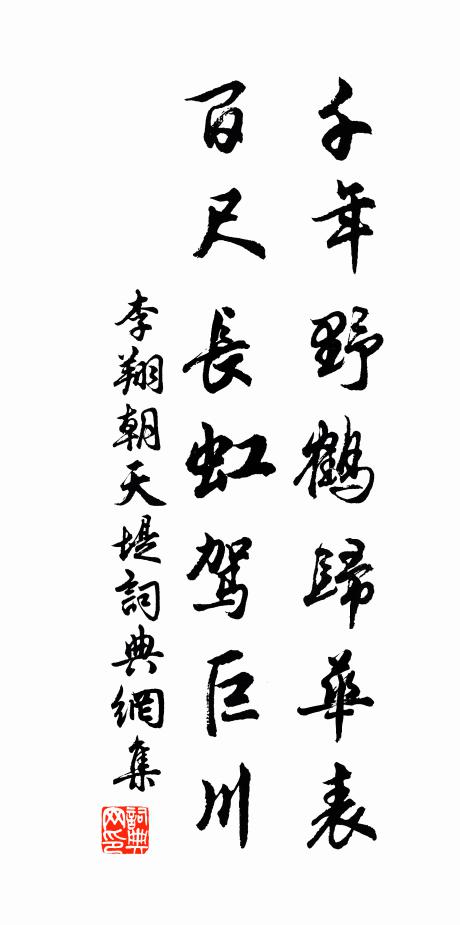 千年野鶴歸華表
百尺長虹駕巨川
李翔朝天堤詞典網集
詞典
网印